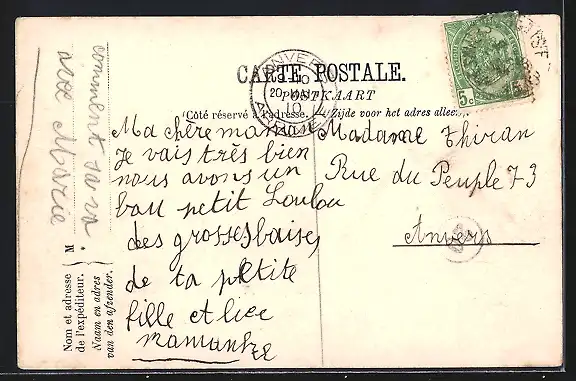 CARTE POSTALE.
POSTKAART
(Côté réservé à l'adresse.) (Zijde voor het adres alleen.)
ANVERS
10
20
10
5c
5c
Ma chère maman
Je vais très bien
nous avons un
bau petit Loulou
des grosses baises
de ta petite
fille et lice
mamanke
Madame Thiran
Rue du Peuple 73
Anvers
comment sa va
avec Marie
M
Nom et adresse
de l'expéditeur.
Naam en adres
van den afzender.